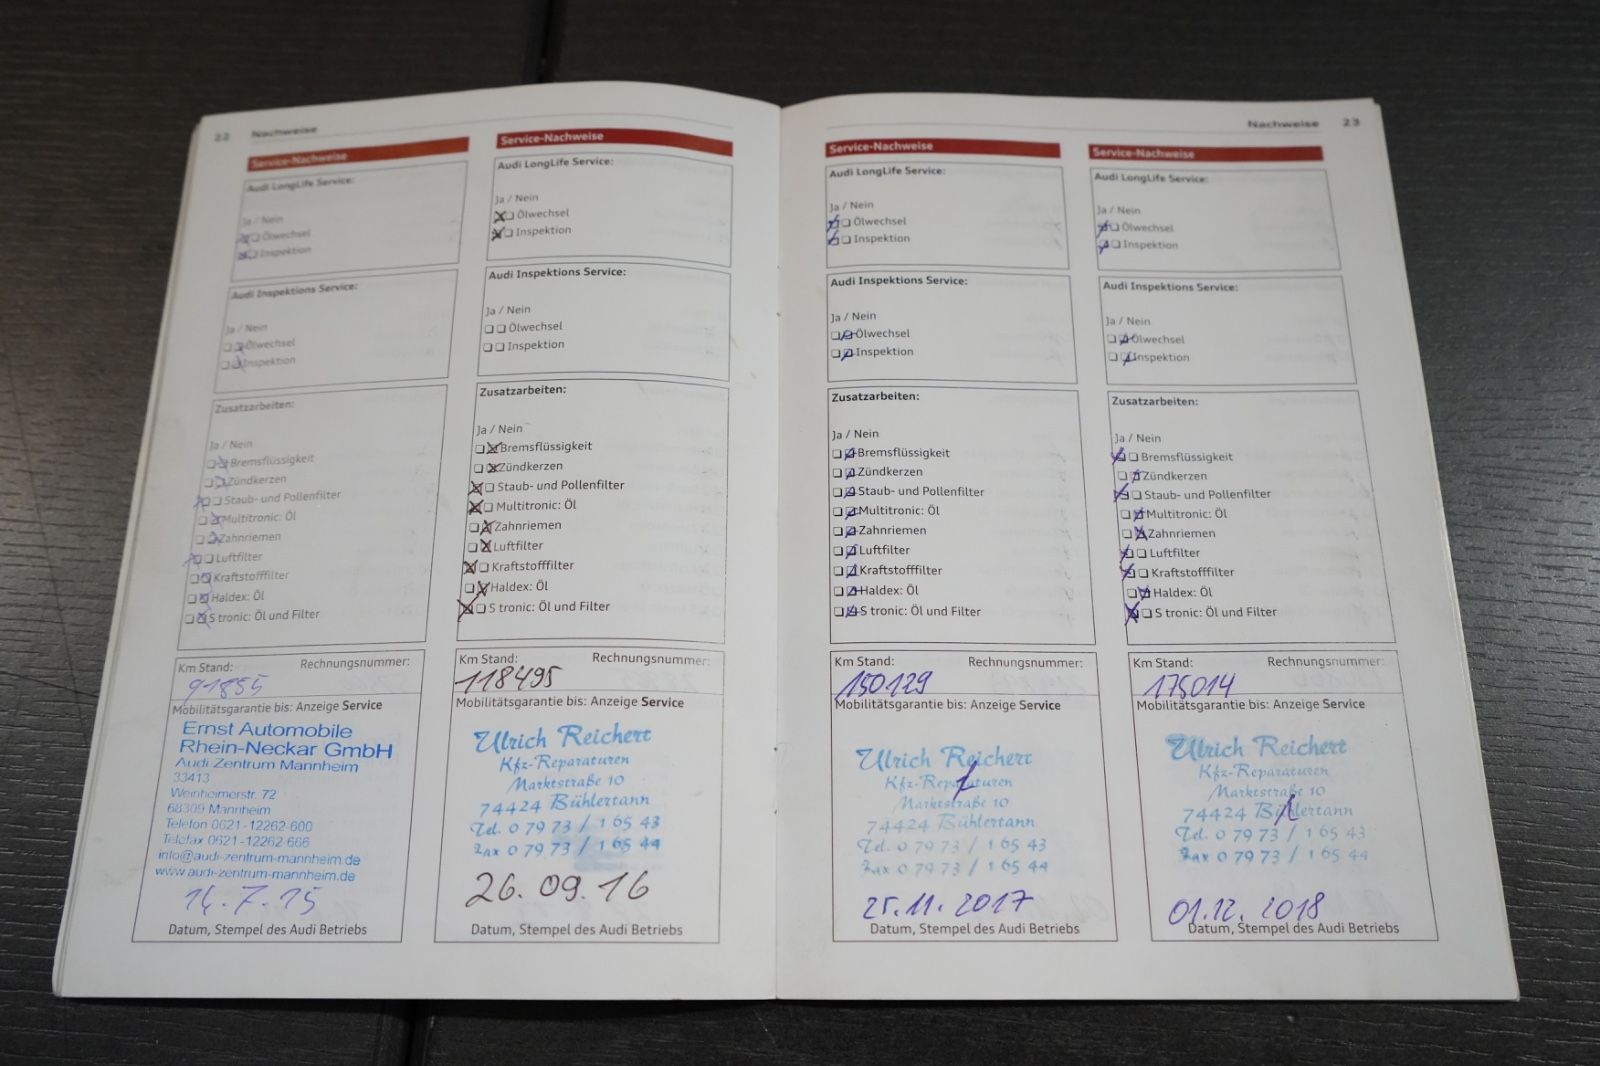 22 Nachweise
Service-Nachweise
Audi LongLife Service:
Ja / Nein
Ölwechsel
Inspektion
Audi Inspektions Service:
Ja / Nein
Ölwechsel
Inspektion
Zusatzarbeiten:
Ja / Nein
Bremsflüssigkeit
Zündkerzen
Staub- und Pollenfilter
Multitronic: Öl
Zahnriemen
Luftfilter
Kraftstofffilter
Haldex: Öl
S tronic: Öl und Filter
Km Stand: Rechnungsnummer:
91855
Mobilitätsgarantie bis: Anzeige Service
Ernst Automobile
Rhein-Neckar GmbH
Audi Zentrum Mannheim
33413
Weinheimerstr. 72
68309 Mannheim
Telefon 0621-12262-600
Telefax 0621-12262-666
info@audi-zentrum-mannheim.de
www.audi-zentrum-mannheim.de
14.7.15
Datum, Stempel des Audi Betriebs
Service-Nachweise
Audi LongLife Service:
Ja / Nein
Ölwechsel
Inspektion
Audi Inspektions Service:
Ja / Nein
Ölwechsel
Inspektion
Zusatzarbeiten:
Ja / Nein
Bremsflüssigkeit
Zündkerzen
Staub- und Pollenfilter
Multitronic: Öl
Zahnriemen
Luftfilter
Kraftstofffilter
Haldex: Öl
S tronic: Öl und Filter
Km Stand: Rechnungsnummer:
118495
Mobilitätsgarantie bis: Anzeige Service
Ulrich Reichert
Kfz-Reparaturen
Marktstraße 10
74424 Bühlertann
Tel. 0 79 73 / 1 65 43
Fax 0 79 73 / 1 65 44
26.09.16
Datum, Stempel des Audi Betriebs
Nachweise 23
Service-Nachweise
Audi LongLife Service:
Ja / Nein
Ölwechsel
Inspektion
Audi Inspektions Service:
Ja / Nein
Ölwechsel
Inspektion
Zusatzarbeiten:
Ja / Nein
Bremsflüssigkeit
Zündkerzen
Staub- und Pollenfilter
Multitronic: Öl
Zahnriemen
Luftfilter
Kraftstofffilter
Haldex: Öl
S tronic: Öl und Filter
Km Stand: Rechnungsnummer:
150129
Mobilitätsgarantie bis: Anzeige Service
Ulrich Reichert
Kfz-Reparaturen
Marktstraße 10
74424 Bühlertann
Tel. 0 79 73 / 1 65 43
Fax 0 79 73 / 1 65 44
25.11.2017
Datum, Stempel des Audi Betriebs
Service-Nachweise
Audi LongLife Service:
Ja / Nein
Ölwechsel
Inspektion
Audi Inspektions Service:
Ja / Nein
Ölwechsel
Inspektion
Zusatzarbeiten:
Ja / Nein
Bremsflüssigkeit
Zündkerzen
Staub- und Pollenfilter
Multitronic: Öl
Zahnriemen
Luftfilter
Kraftstofffilter
Haldex: Öl
S tronic: Öl und Filter
Km Stand: Rechnungsnummer:
175014
Mobilitätsgarantie bis: Anzeige Service
Ulrich Reichert
Kfz-Reparaturen
Marktstraße 10
74424 Bühlertann
Tel. 0 79 73 / 1 65 43
Fax 0 79 73 / 1 65 44
01.12.2018
Datum, Stempel des Audi Betriebs